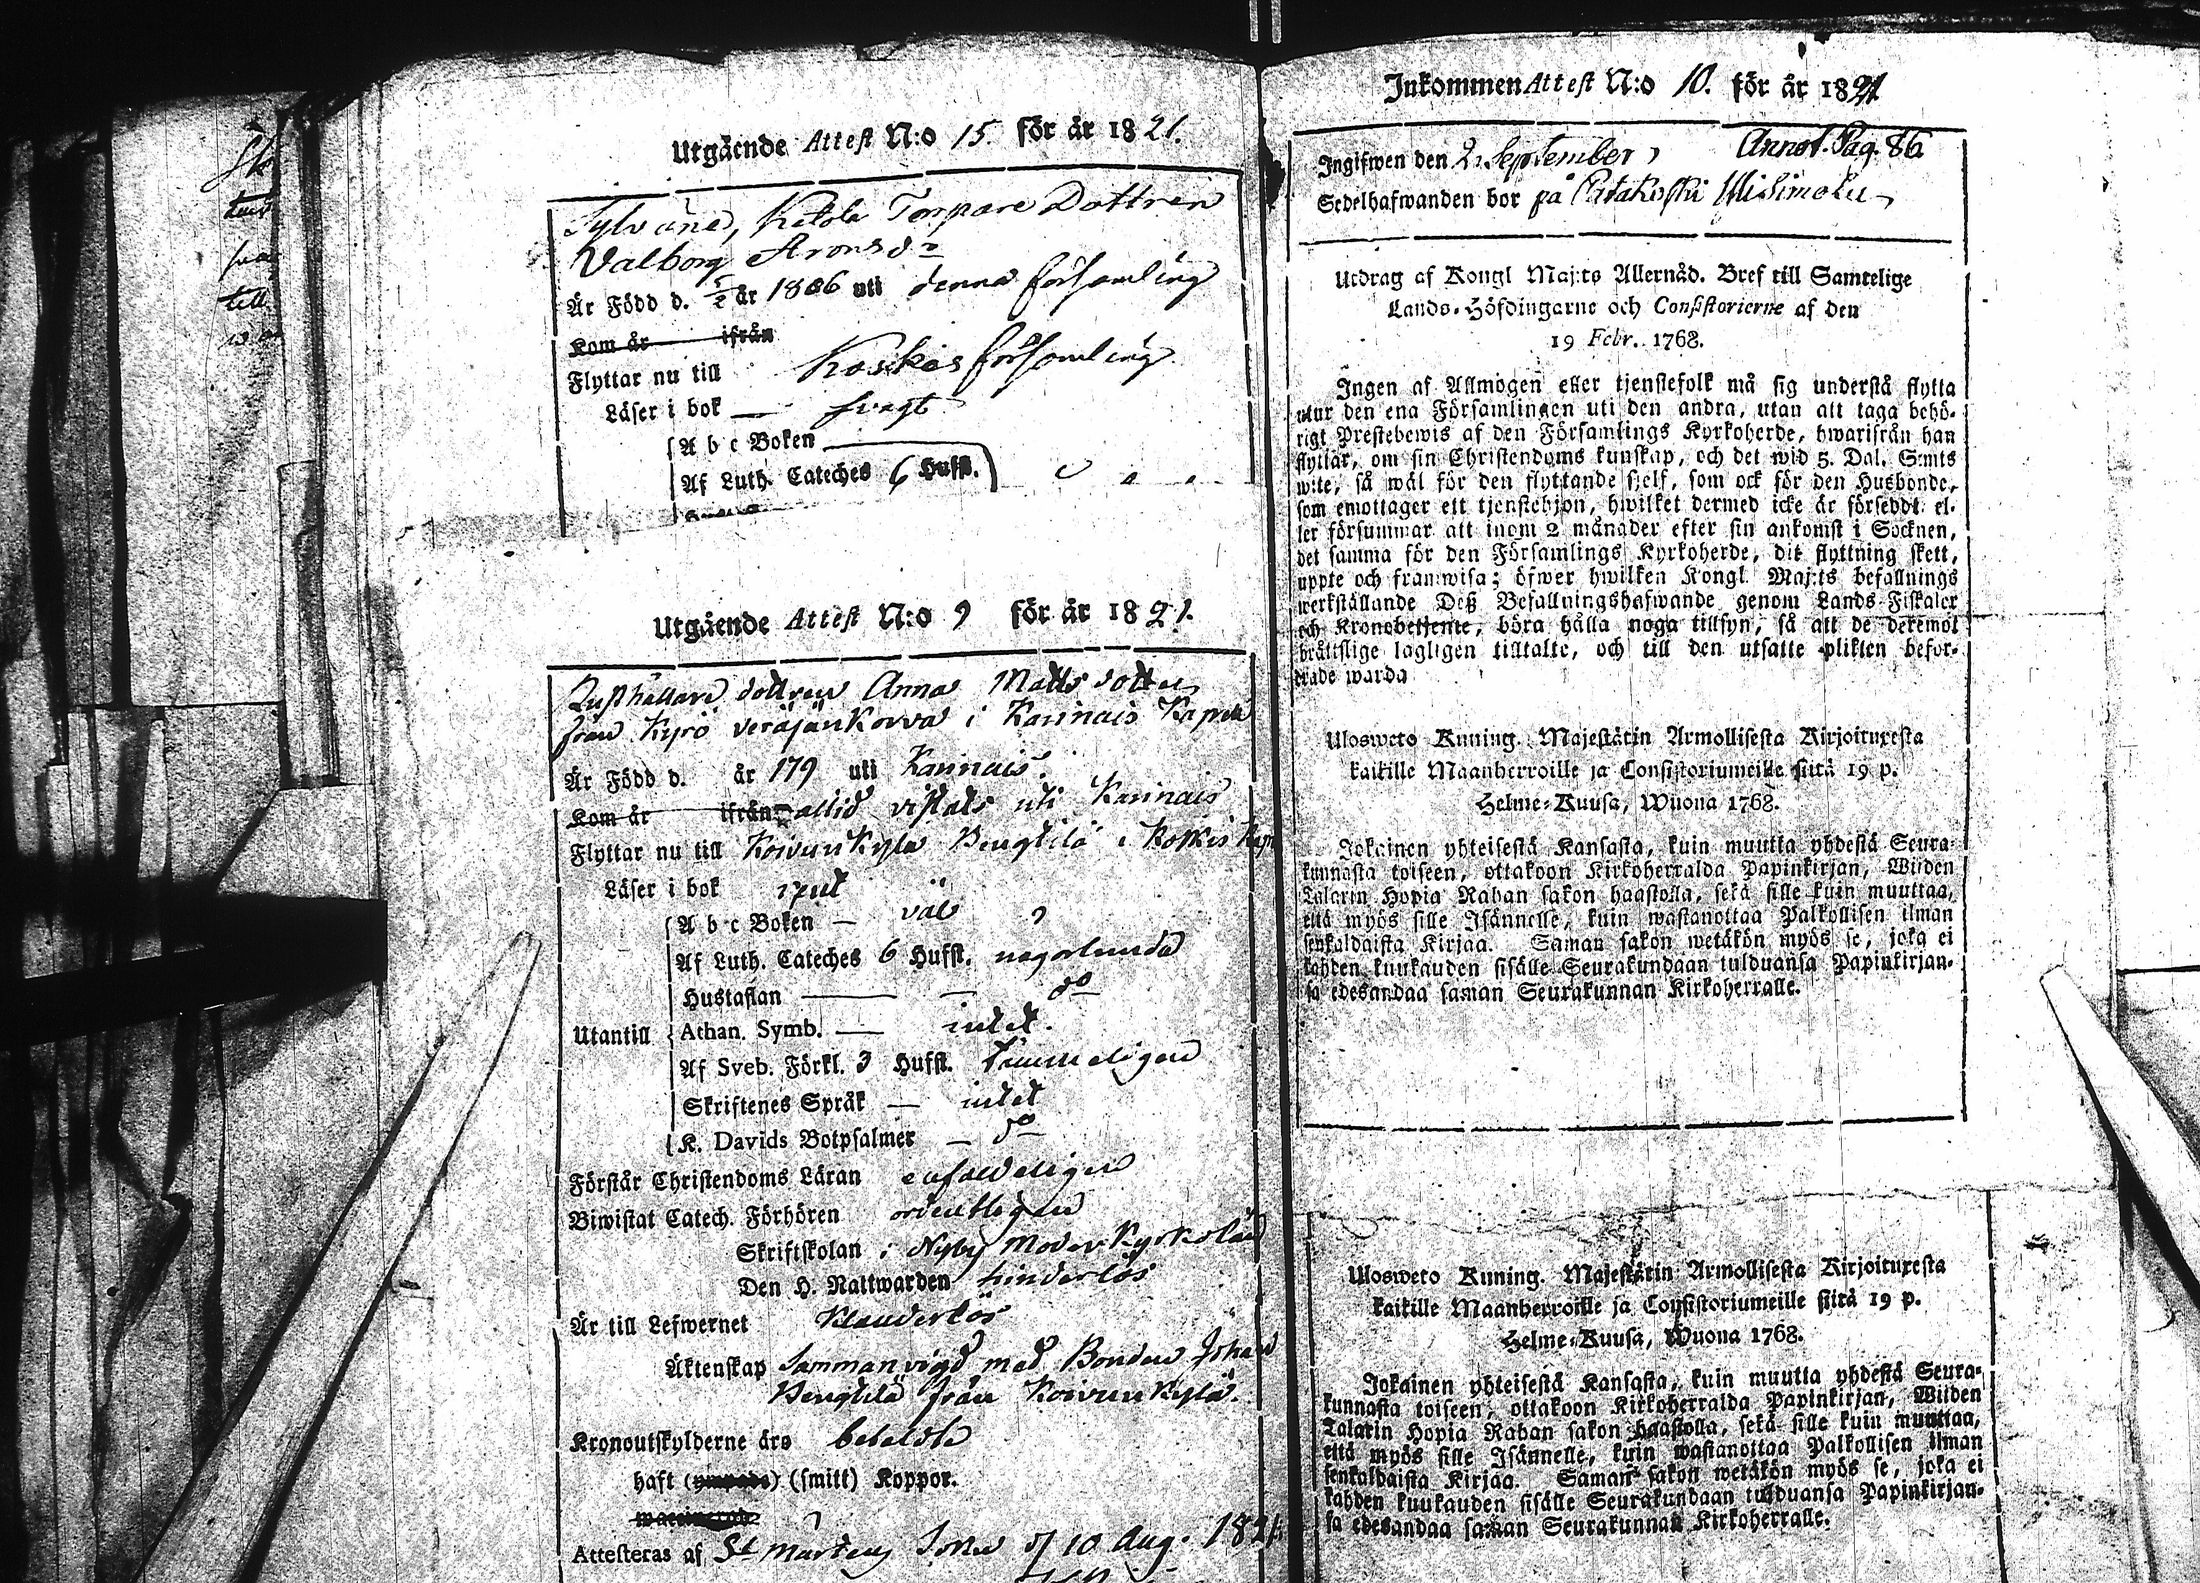 Utgående Attest N:o 15. för år 1821.
Torpare Dottren
Valborg Aronsd:r
Är Född d. 5/2 år 1806 uti denna församling
Kom år ifrån
Flyttar nu till Koskis församling
Läser i bok — svagt
A b c Boken
Af Luth. Cateches 6 Hufst.
Utgående Attest N:o 9 för år 1821.
Rusthållare dottren Anna Matts dotter
från Kyrö veräjänkorva i Karinais Kapell
Är Född d. år 179 uti Karinais.
Kom år ifrån altid vistats uti Karinais
Flyttar nu till Koivunkylä Bengtilä i Koskis Kap
Läser i bok
A b c Boken — väl
Af Luth. Cateches 6 Hufst. någorlunda
Hustaflan — d:o
Utantill Athan. Symb. — intet.
Af Sveb. Förkl. 3 Hufst.
Skriftenes Språk — intet
K. Davids Botpsalmer — d:o
Förstår Christendoms Läran enfaldeligen
Biwistat Catech. Förhören ordentligen
Skriftskolan i Nyby Moderkyrko
Den H. Nattwarden hinderlös
Är till Lefwernet klanderlös
Äktenskap Sammanvigd med Bonden Johan
Bengtilä från Koivunkylä.
Kronoutskylderne äro betalde
haft (ympade) (smitt) Koppor.
Attesteras af St Mårtens d 10 Aug. 1821
Inkommen Attest N:o 10. för år 1821
Ingifwen den 2 September, Annot. Pag. 86
Sedelhafwanden bor på
Utdrag af Kongl Maj:ts Allernåd. Bref till Samtelige
Lands-Höfdingarne och Consistorierne af den
19 Febr. 1768.
Ingen af Allmogen eller tjenstefolk må sig understå flytta
utur den ena Församlingen uti den andra, utan att taga behö-
rigt Prestebewis af den Församlings Kyrkoherde, hwarifrån han
flyttar, om sin Christendoms kunskap, och det wid 5. Dal. S:mts
wite, så wäl för den flyttande sjelf, som ock för den Husbonde,
som emottager ett tjenstehjon, hwilket dermed icke är försedt: el-
ler försummar att inom 2 månader efter sin ankomst i Socknen,
det samma för den Församlings Kyrkoherde, dit flyttning skett,
uppte och framwisa; öfwer hwilken Kongl Maj:ts befallnings
werkställande Deß Befallningshafwande genom Lands-Fiskaler
och Kronobetjente, böra hålla noga tillsyn, så att de deremot
bråttslige lagligen tilltalte, och till den utsatte plikten befor-
drade warda
Ulosweto Kuning. Majestätin Armollisesta Kirjoituxesta
kaikille Maanherroille ja Consistoriumeille siitä 19 p.
Helme-Kuusa, Wuona 1768.
Jokainen yhteisestä Kansasta, kuin muutta yhdestä Seura-
kunnasta toiseen, ottakoon Kirkoherralda Papinkirjan, Wiiden
Talarin Hopia Rahan sakon haastolla, sekä sille kuin muuttaa,
että myös sille Isännelle, kuin wastanottaa Palkollisen ilman
senkaldaista Kirjaa. Saman sakon wetäkön myös se, joka ei
kahden kuukauden sisälle Seurakundaan tulduansa Papinkirjan-
sa edesandaa saman Seurakunnan Kirkoherralle.
Ulosweto Kuning. Majestätin Armollisesta Kirjoituxesta
kaikille Maanherroille ja Consistoriumeille siitä 19 p.
Helme-Kuusa, Wuona 1768.
Jokainen yhteisestä Kansasta, kuin muutta yhdestä Seura-
kunnasta toiseen, ottakoon Kirkoherralda Papinkirjan, Wiiden
Talarin Hopia Rahan sakon haastolla, sekä sille kuin muuttaa,
että myös sille Isännelle, kuin wastanottaa Palkollisen ilman
senkaldaista Kirjaa. Saman sakon wetäkön myös se, joka ei
kahden kuukauden sisälle Seurakundaan tulduansa Papinkirjan-
sa edesandaa saman Seurakunnan Kirkoherralle.